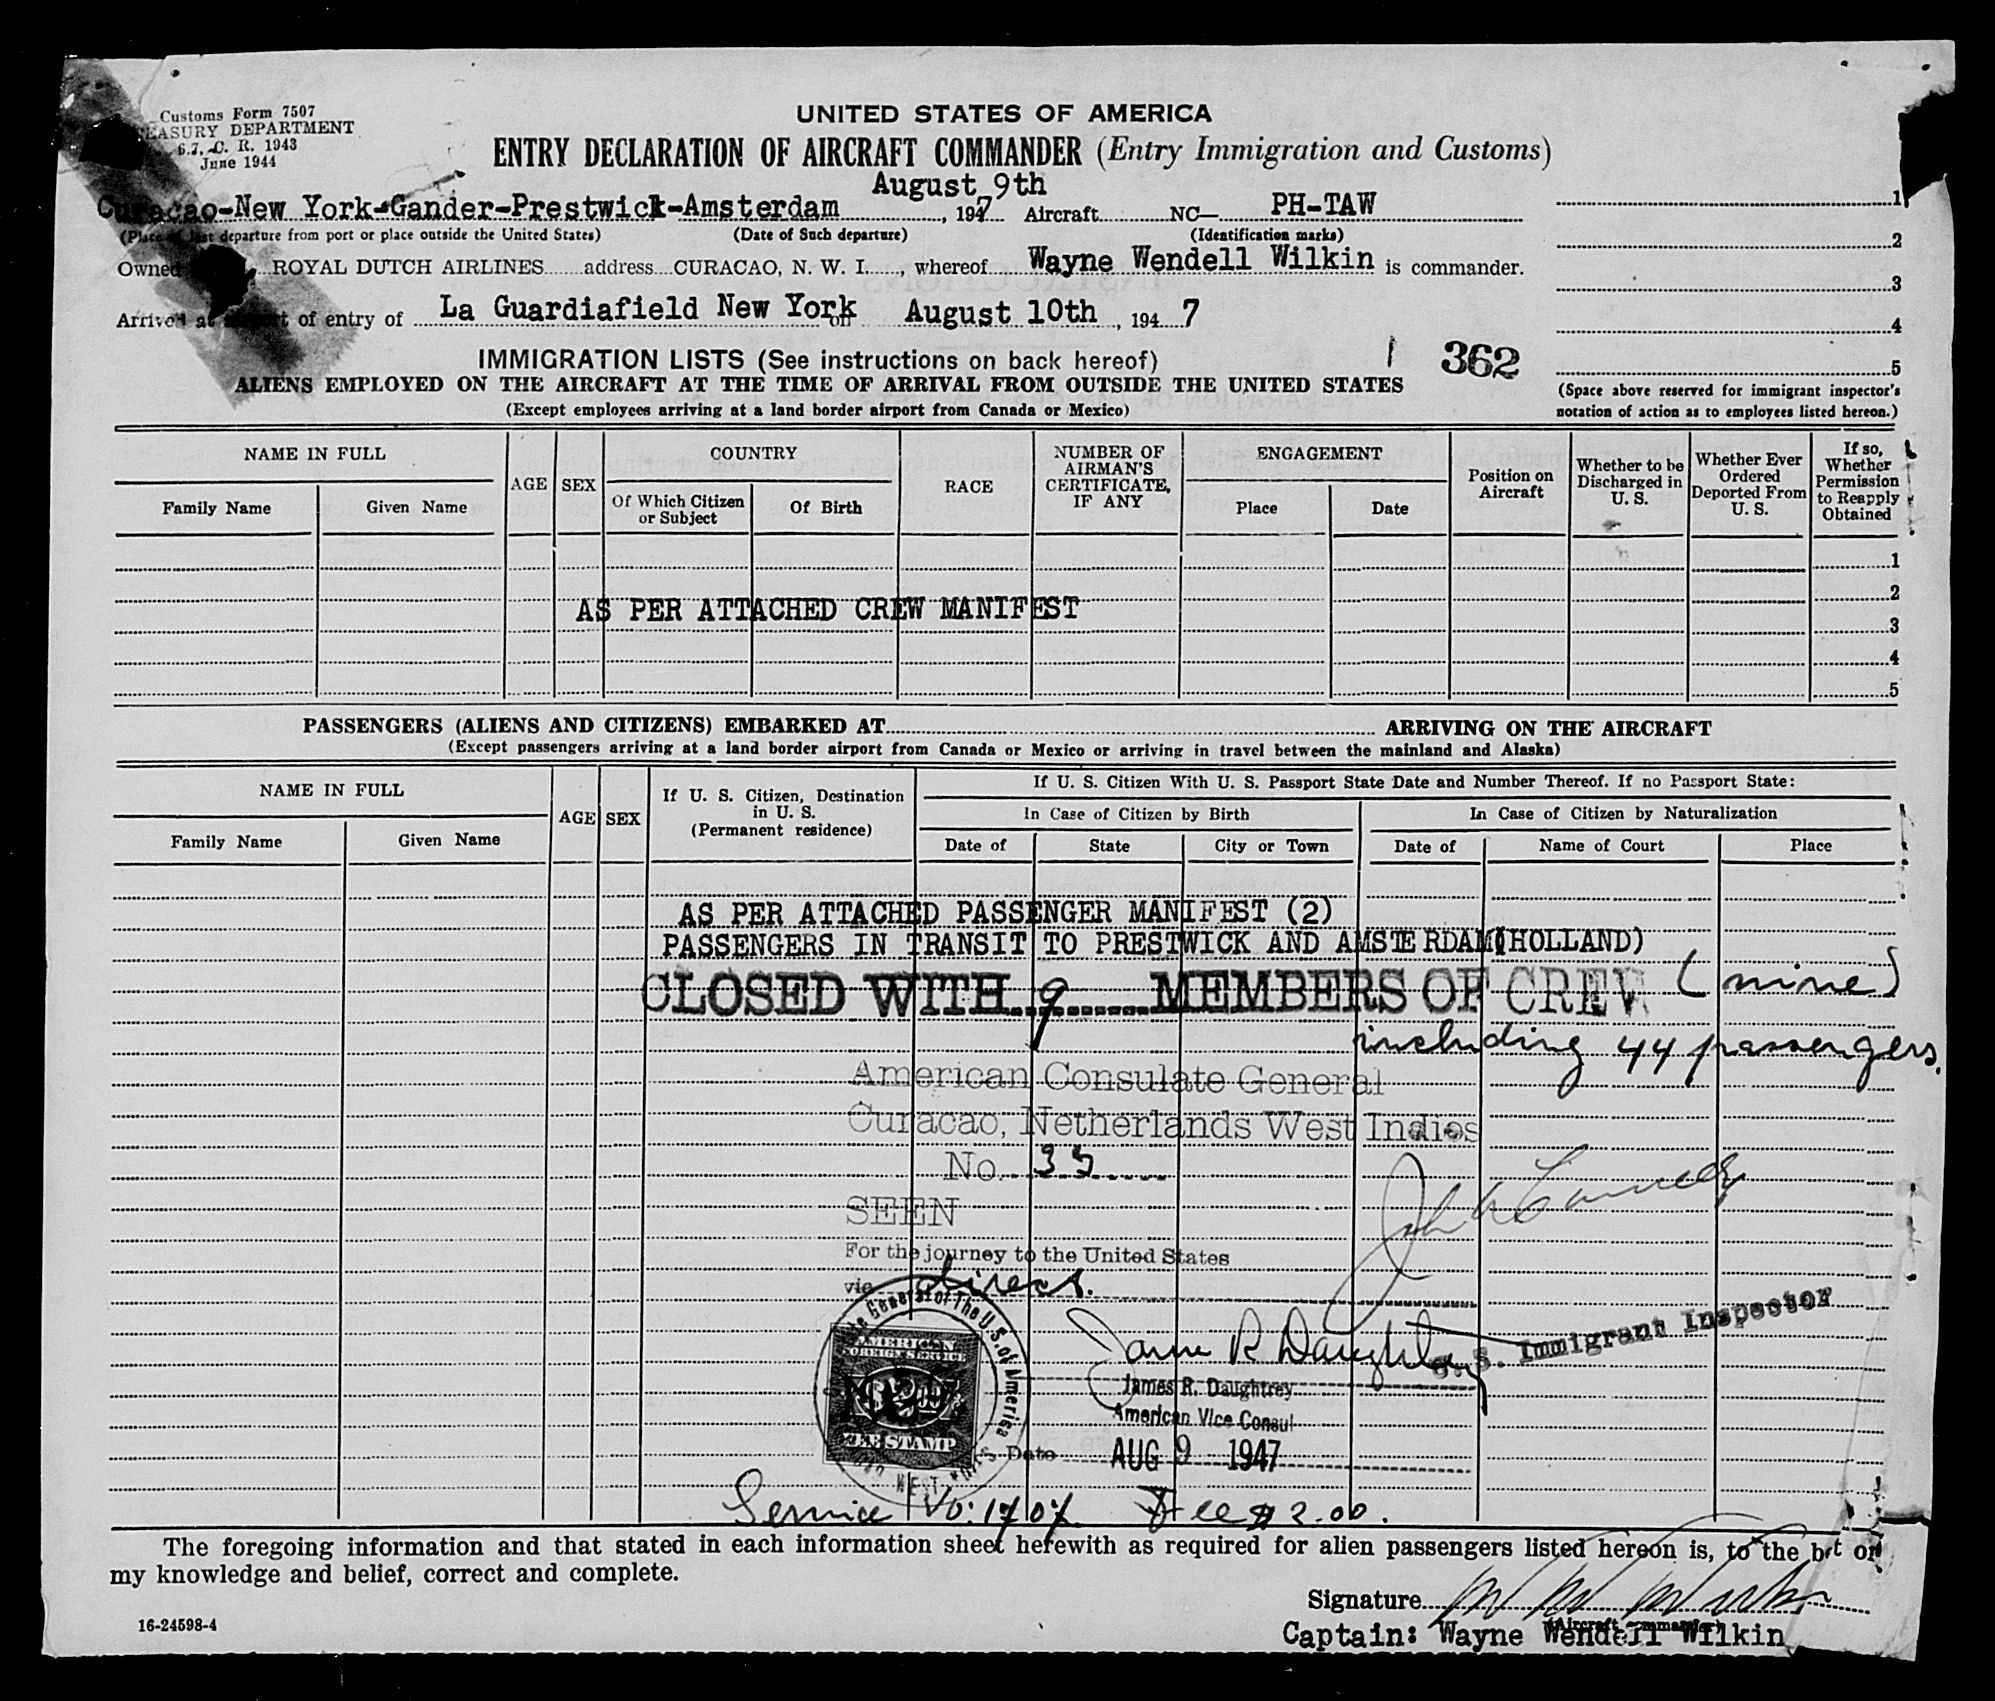 Customs Form 7507
TREASURY DEPARTMENT
6.7, C. R. 1943
June 1944
UNITED STATES OF AMERICA
ENTRY DECLARATION OF AIRCRAFT COMMANDER (Entry Immigration and Customs)
August 9th
Curacao-New York-Gander-Prestwick-Amsterdam, 1947 Aircraft NC— PH-TAW
(Place of last departure from port or place outside the United States) (Date of Such departure) (Identification marks)
Owned ROYAL DUTCH AIRLINES address CURACAO, N. W. I., whereof Wayne Wendell Wilkin is commander.
Arrived at port of entry of La Guardiafield New York on August 10th, 1947
1
2
3
4
5
(Space above reserved for immigrant inspector's
notation of action as to employees listed hereon.)
IMMIGRATION LISTS (See instructions on back hereof) 1 362
ALIENS EMPLOYED ON THE AIRCRAFT AT THE TIME OF ARRIVAL FROM OUTSIDE THE UNITED STATES
(Except employees arriving at a land border airport from Canada or Mexico)
NAME IN FULL
Family Name Given Name
AGE SEX
COUNTRY
Of Which Citizen or Subject Of Birth
RACE
NUMBER OF AIRMAN'S CERTIFICATE, IF ANY
ENGAGEMENT
Place Date
Position on Aircraft
Whether to be Discharged in U. S.
Whether Ever Ordered Deported From U. S.
If so, Whether Permission to Reapply Obtained
1
2
AS PER ATTACHED CREW MANIFEST
3
4
5
PASSENGERS (ALIENS AND CITIZENS) EMBARKED AT ARRIVING ON THE AIRCRAFT
(Except passengers arriving at a land border airport from Canada or Mexico or arriving in travel between the mainland and Alaska)
NAME IN FULL
Family Name Given Name
AGE SEX
If U. S. Citizen, Destination in U. S. (Permanent residence)
If U. S. Citizen With U. S. Passport State Date and Number Thereof. If no Passport State:
In Case of Citizen by Birth In Case of Citizen by Naturalization
Date of State City or Town Date of Name of Court Place
AS PER ATTACHED PASSENGER MANIFEST (2)
PASSENGERS IN TRANSIT TO PRESTWICK AND AMSTERDAM(HOLLAND)
CLOSED WITH 9 MEMBERS OF CREW (nine)
including 44 passengers.
American Consulate General
Curacao, Netherlands West Indies
No. 35
SEEN
For the journey to the United States
via direct.
U. S. Immigrant Inspector
General of The U.S. of America
AMERICAN
FOREIGN SERVICE
FEE STAMP
James R Daughtrey
James R. Daughtrey
American Vice Consul
Date AUG 9 1947
Service No: 1707. Fee $2.00.
The foregoing information and that stated in each information sheet herewith as required for alien passengers listed hereon is, to the best of
my knowledge and belief, correct and complete.
Signature
(Aircraft commander)
Captain: Wayne Wendell Wilkin
16-24598-4